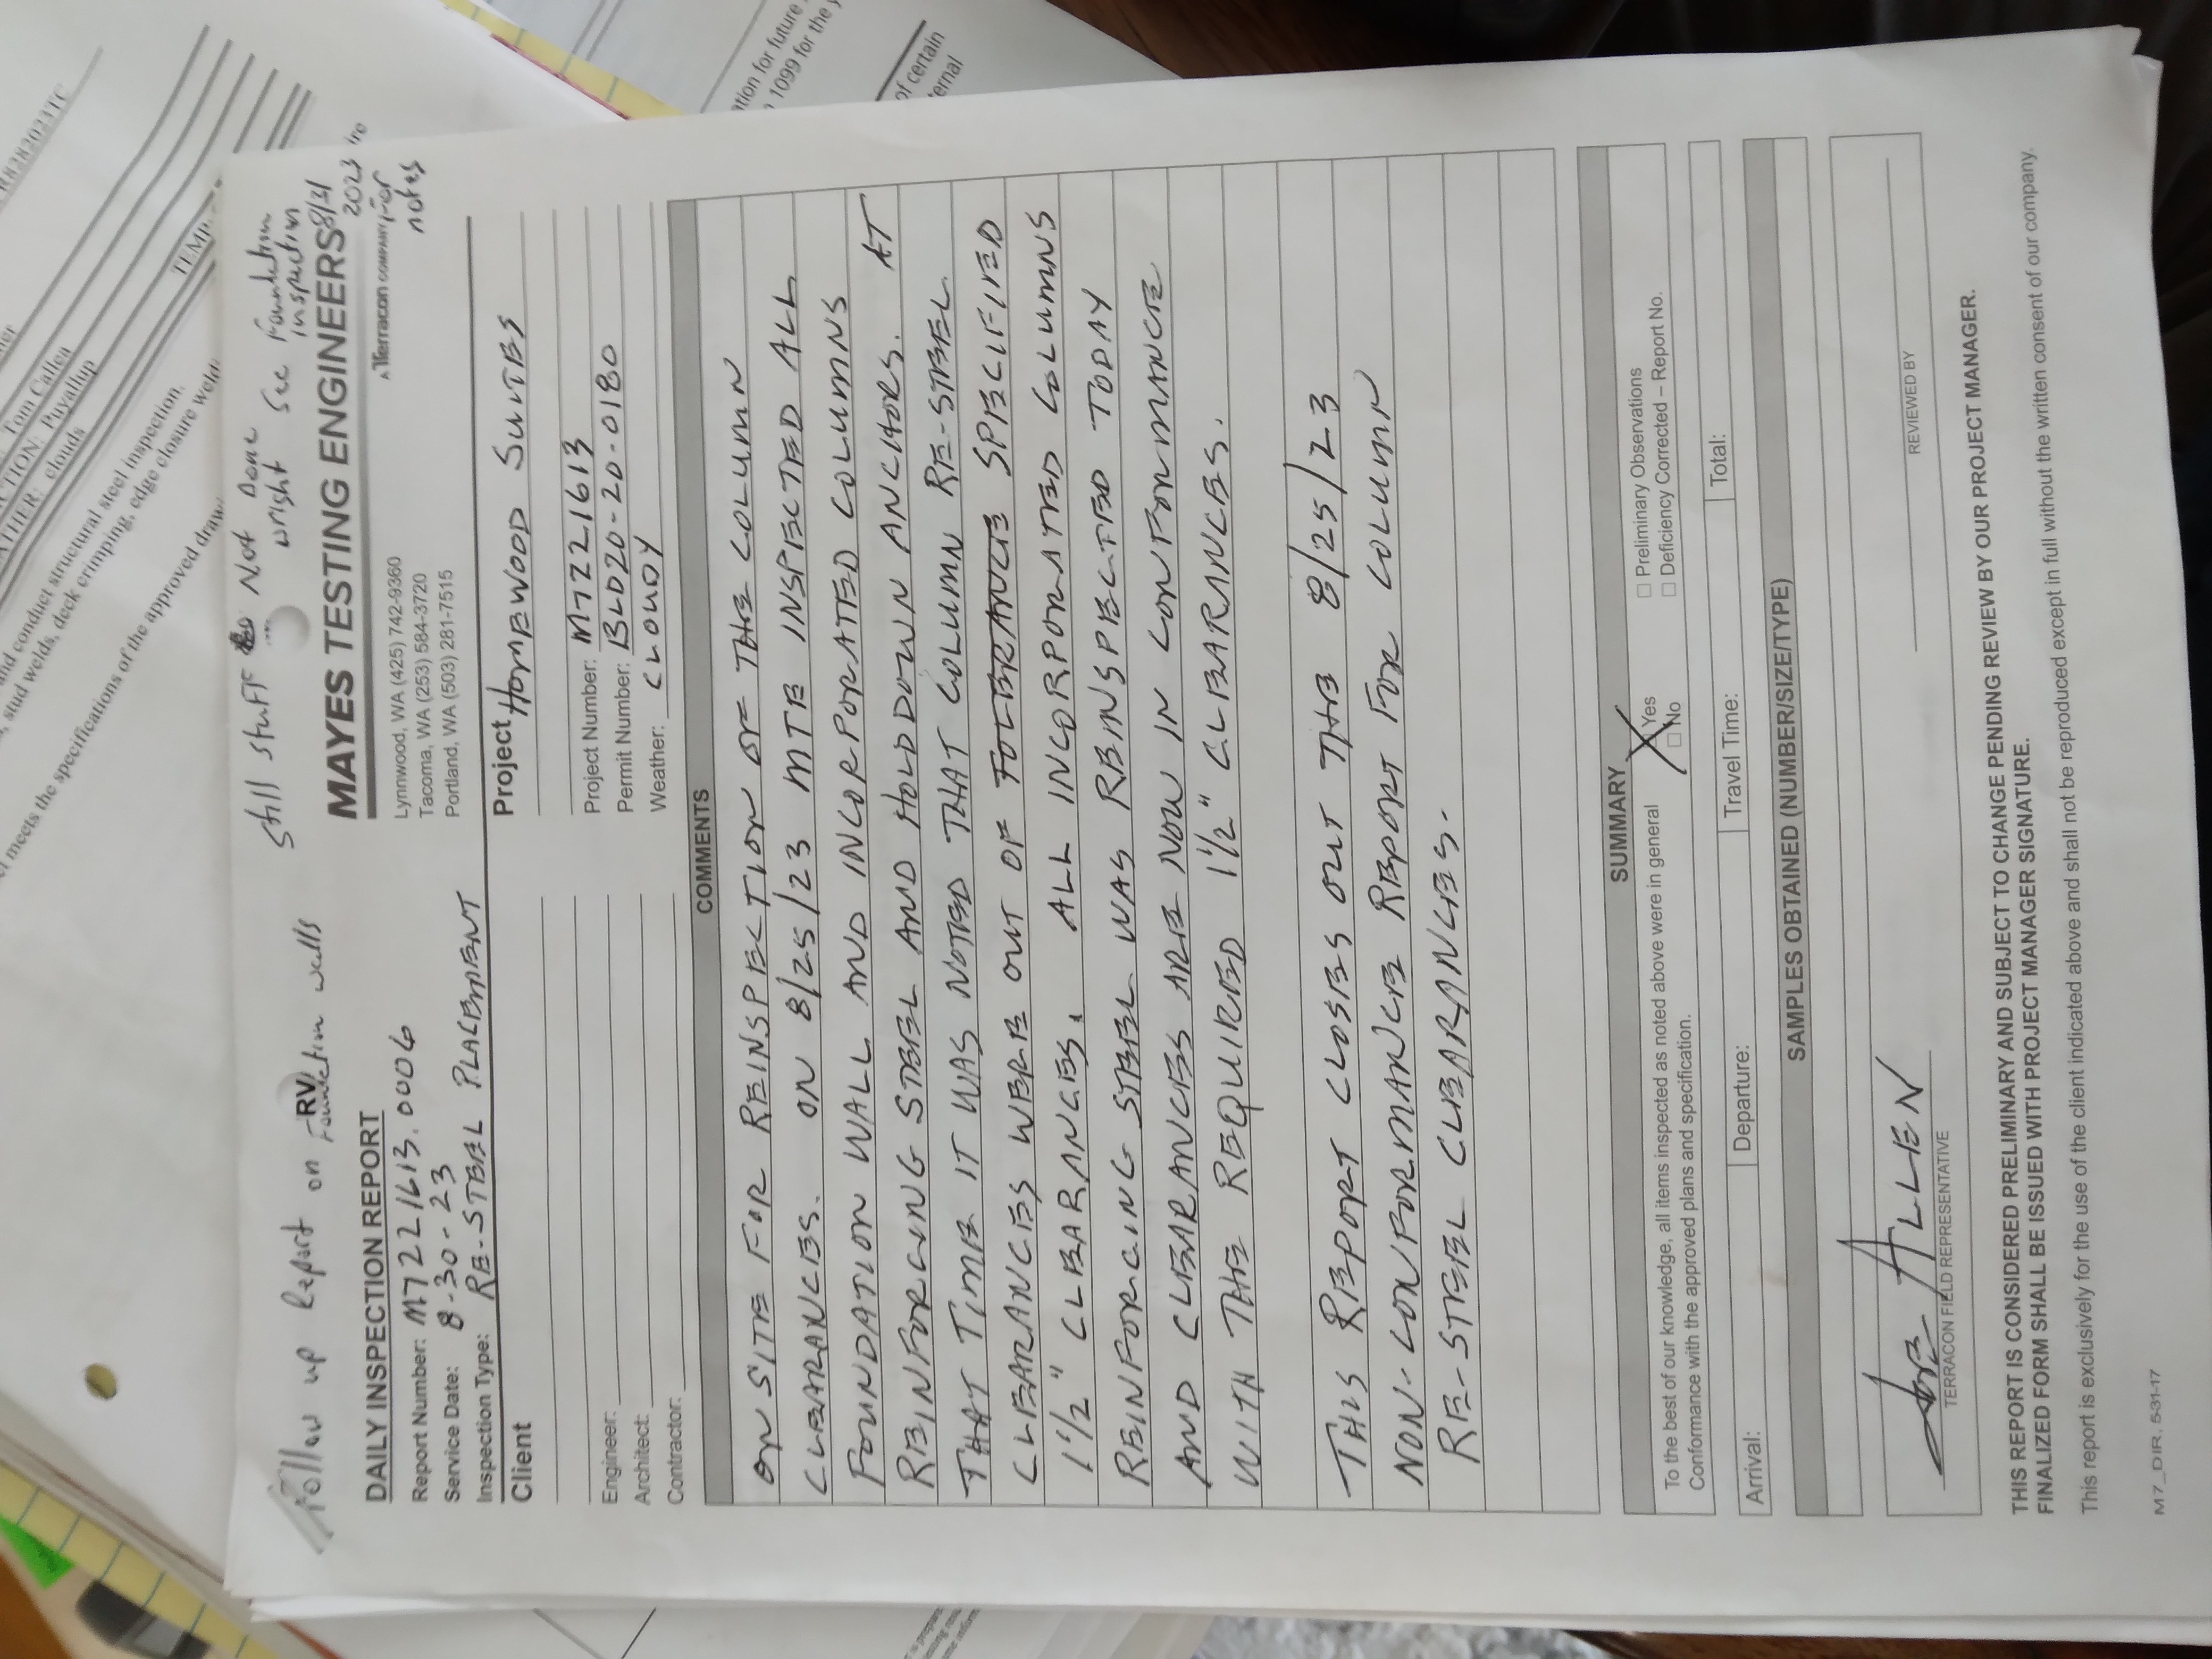 Follow up Report on Foundation walls
RV
Still stuff Not Done
wright See Foundation
inspection
8/31
2023
for
notes
DAILY INSPECTION REPORT
Report Number: M7221613.0006
Service Date: 8-30-23
Inspection Type: RE-STEEL PLACEMENT
MAYES TESTING ENGINEERS
A Terracon COMPANY
Lynnwood, WA (425) 742-9360
Tacoma, WA (253) 584-3720
Portland, WA (503) 281-7515
Client
Engineer:
Architect:
Contractor:
Project HOMEWOOD SUITES
Project Number: M7221613
Permit Number: BLD20-20-0180
Weather: CLOUDY
COMMENTS
ON SITE FOR REINSPECTION OF THE COLUMN
CLEARANCES. ON 8/25/23 MTE INSPECTED ALL
FOUNDATION WALL AND INCORPORATED COLUMNS
REINFORCING STEEL AND HOLDDOWN ANCHORS. AT
THAT TIME IT WAS NOTED THAT COLUMN RE-STEEL
CLEARANCES WERE OUT OF SPECIFIED
1 1/2" CLEARANCES. ALL INCORPORATED COLUMNS
REINFORCING STEEL WAS REINSPECTED TODAY
AND CLEARANCES ARE NOW IN CONFORMANCE
WITH THE REQUIRED 1 1/2" CLEARANCES.
THIS REPORT CLOSES OUT THE 8/25/23
NON-CONFORMANCE REPORT FOR COLUMN
RE-STEEL CLEARANCES.
SUMMARY
To the best of our knowledge, all items inspected as noted above were in general
Conformance with the approved plans and specification.
Yes
No
Preliminary Observations
Deficiency Corrected – Report No.
Arrival:
Departure:
Travel Time:
Total:
SAMPLES OBTAINED (NUMBER/SIZE/TYPE)
JOE ALLEN
TERRACON FIELD REPRESENTATIVE
REVIEWED BY
THIS REPORT IS CONSIDERED PRELIMINARY AND SUBJECT TO CHANGE PENDING REVIEW BY OUR PROJECT MANAGER.
FINALIZED FORM SHALL BE ISSUED WITH PROJECT MANAGER SIGNATURE.
This report is exclusively for the use of the client indicated above and shall not be reproduced except in full without the written consent of our company.
M7_DIR, 5-31-17
Tom Callea
TION: Puyallup
clouds
TEMP.
and conduct structural steel inspection,
stud welds, deck crimping, edge closure weld
meets the specifications of the approved draw
ation for future
1099 for the
of certain
ernal